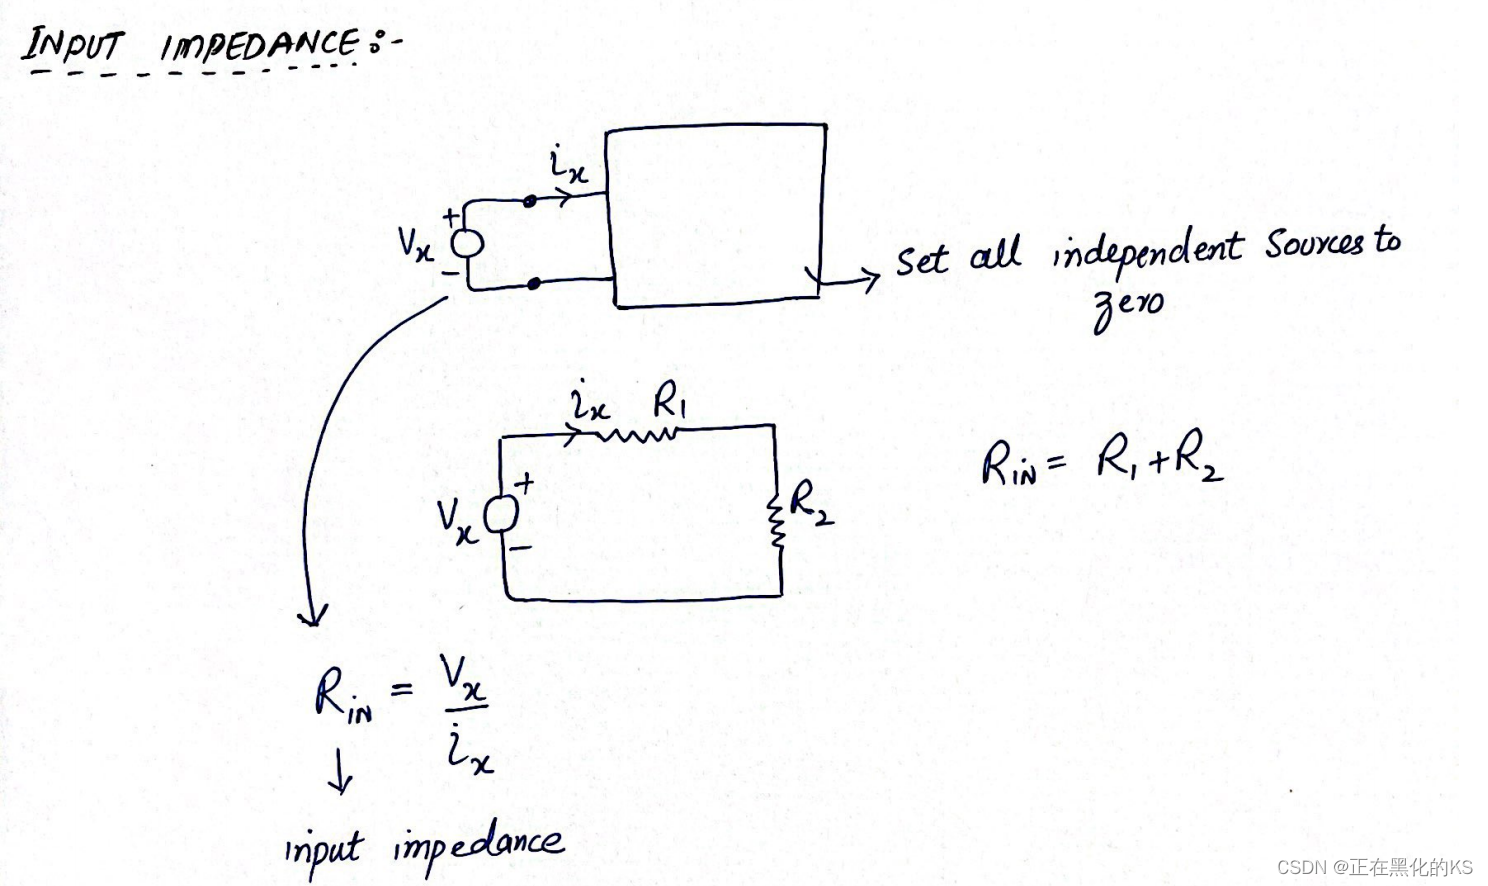 INPUT IMPEDANCE:-
ix
+
Vx
-
Set all independent Sources to
zero
ix R1
+
Vx
-
R2
RIN = R1 + R2
RIN = Vx
ix
input impedance
CSDN @正在黑化的KS